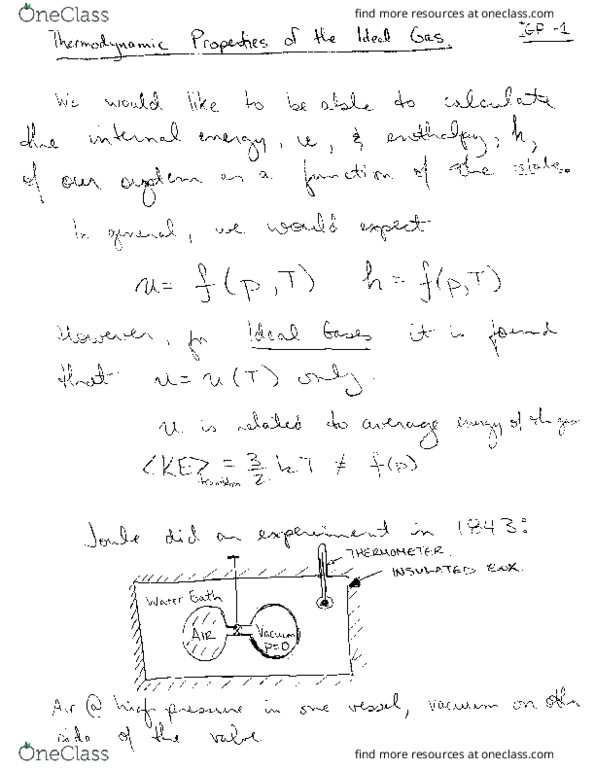 OneClass
find more resources at oneclass.com
Thermodynamic Properties of the Ideal Gas.
IGP-1
We would like to be able to calculate
the internal energy, u, & enthalpy, h,
of our system as a function of the state.
In general, we would expect
u = f(p,T) h = f(p,T)
However, for Ideal Gases it is found
that u = u(T) only.
u is related to average energy of the gas
⟨KE⟩translation = 3/2 kT ≠ f(p)
Joule did an experiment in 1843:
THERMOMETER.
INSULATED BOX.
Water Bath
AIR
Vacuum
p=0
Air @ high pressure in one vessel, vacuum on other
side of the valve
OneClass
find more resources at oneclass.com